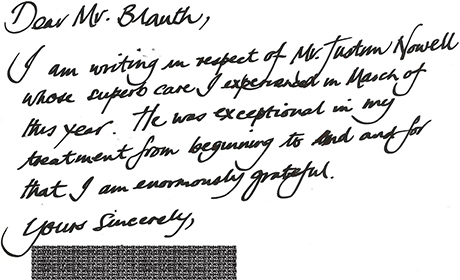 Dear Mr. Blauth,
I am writing in respect of Mr. Justin Nowell
whose superb care I experienced in March of
this year. He was exceptional in my
treatment from beginning to end and for
that I am enormously grateful.
Yours Sincerely,